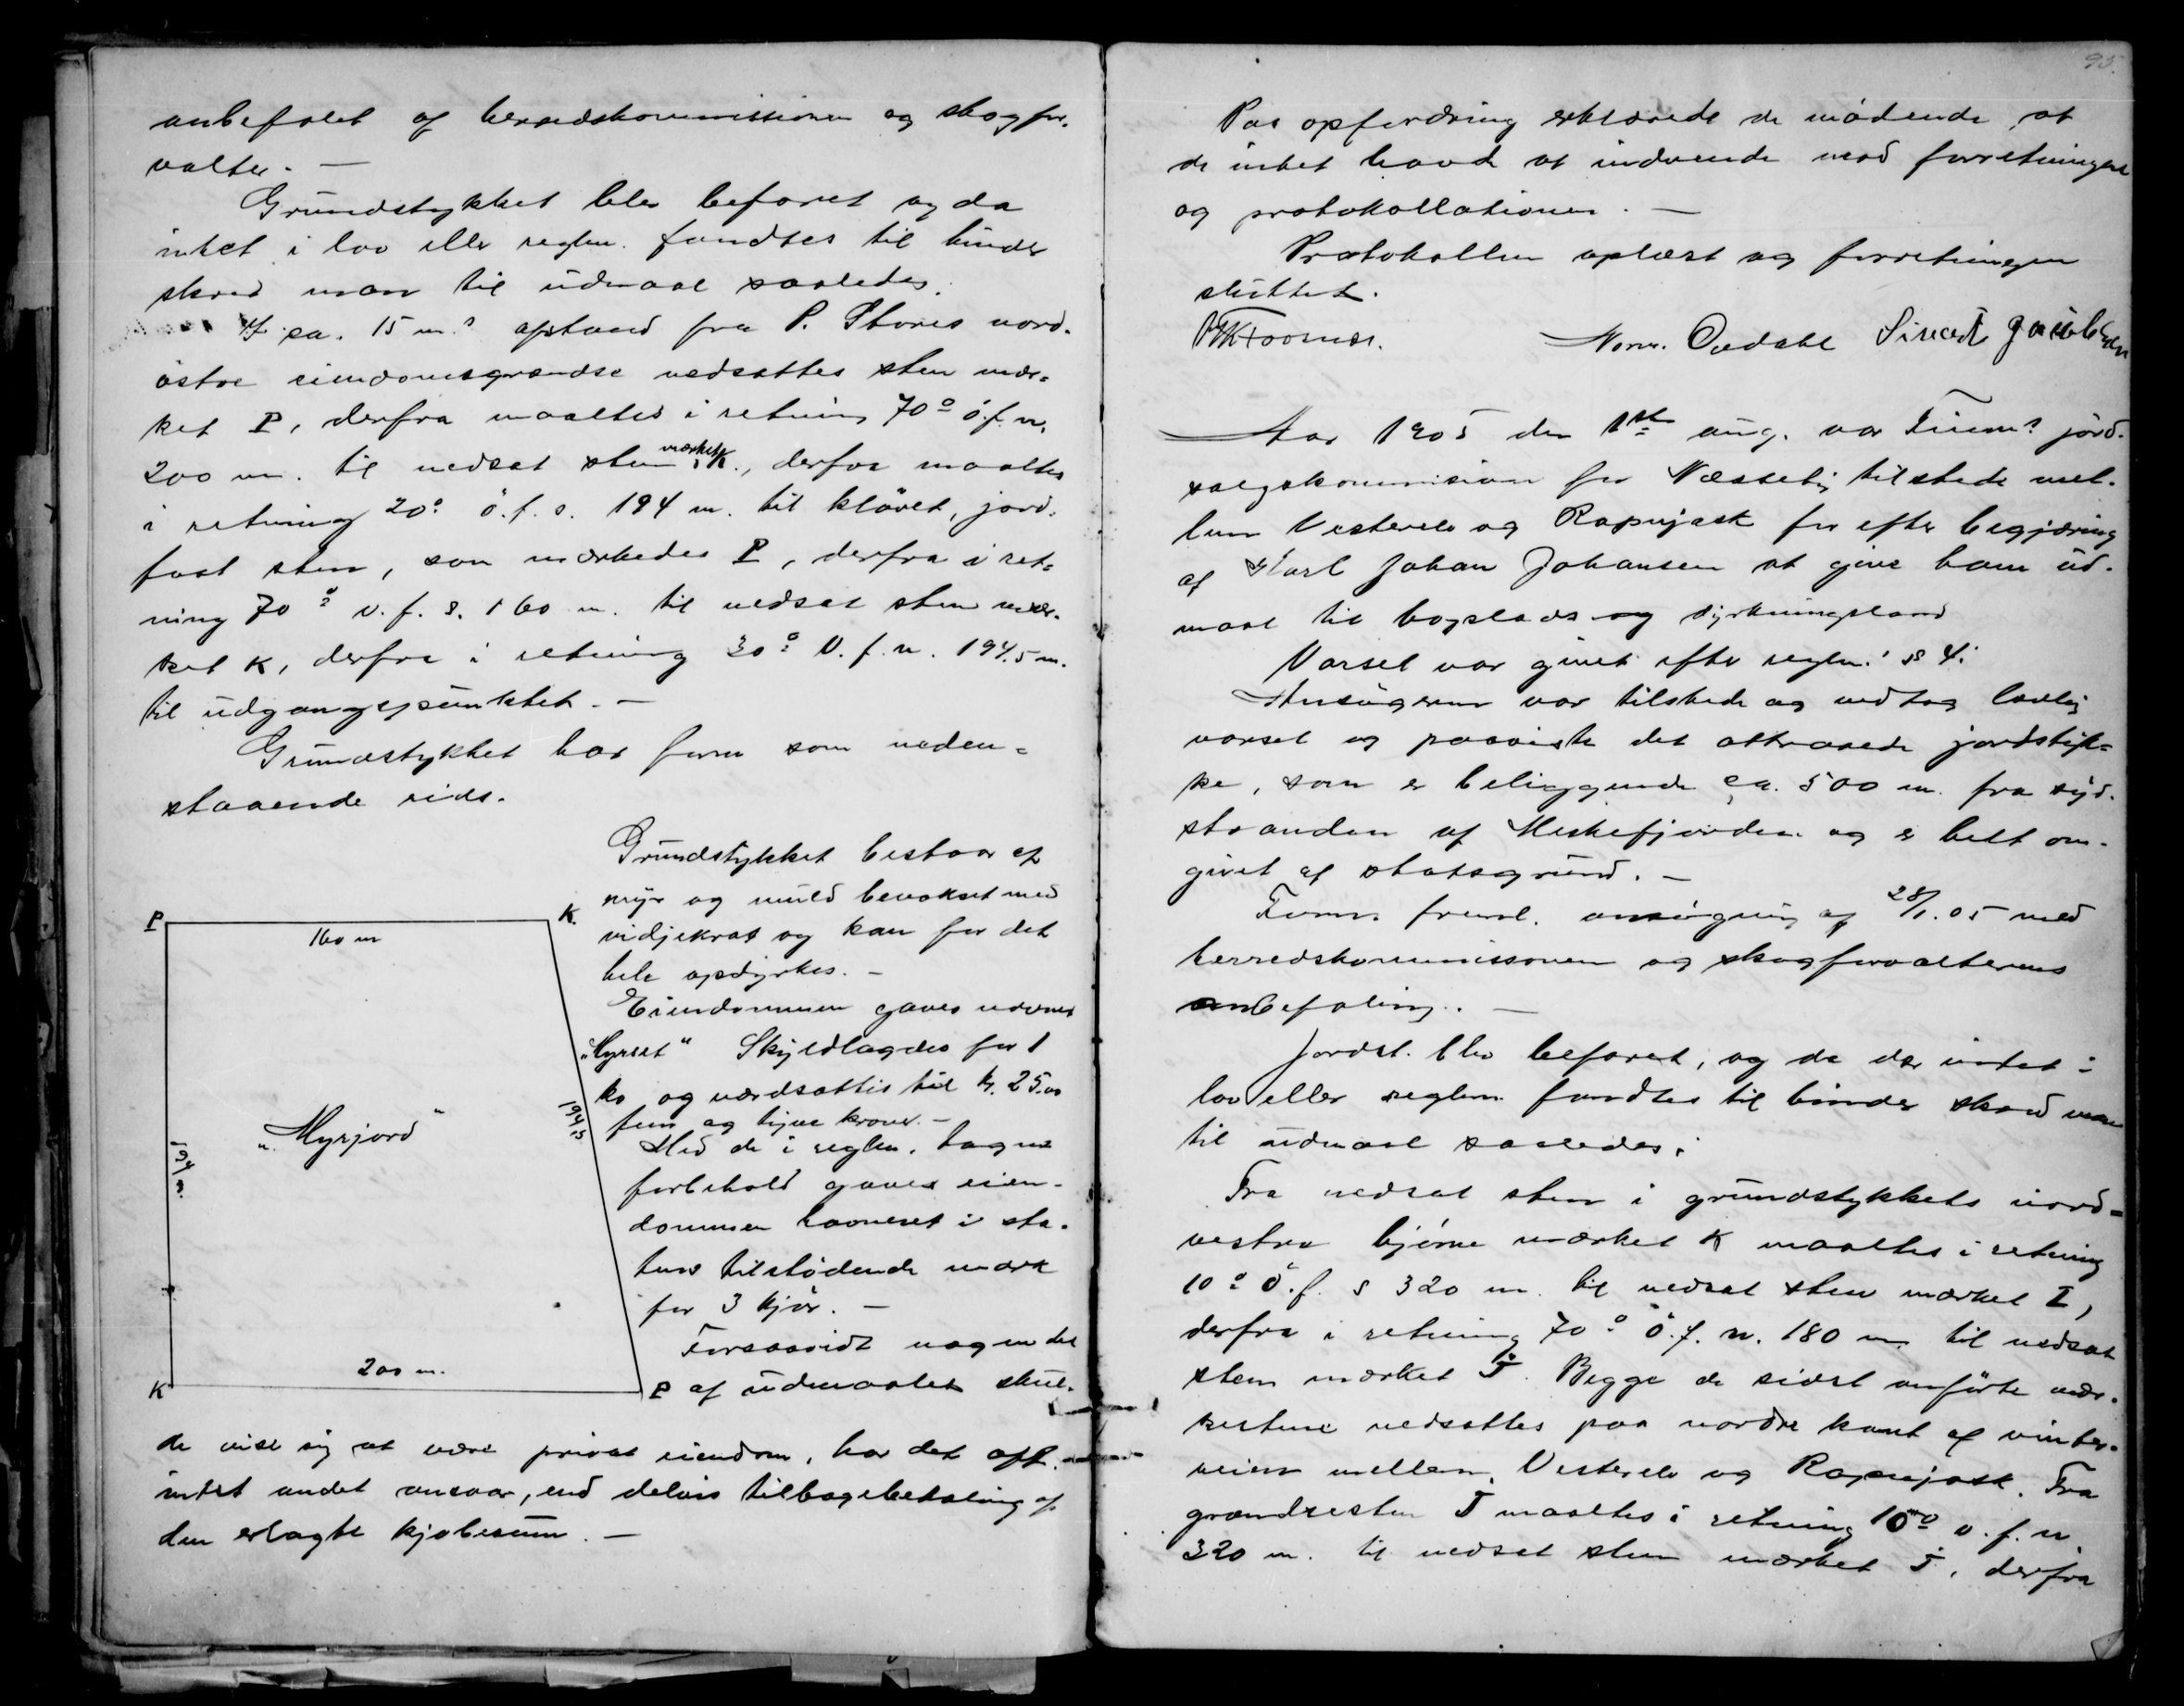 anbefalet af herredskommissionen og skogfor-
valter. —
Grundstykket blev befaret og da
intet i lov eller reglem. fandtes til hinder
skred man til udmaal saaledes:
I ca. 15 m.s afstand fra P. Stores nord-
östre eiendomsgrændse nedsattes sten mær-
ket P, derfra maaltes i retning 70° ö.f.n.
200 m. til nedsat sten mærket K., derfra maaltes
i retning 20° ö.f.s. 194 m. til klövet, jord-
fast sten, som mærkedes P, derfra i ret-
ning 70° v.f.s. 160 m. til nedsat sten mær-
ket K, derfra i retning 30° V.f.n. 194.5 m.
til udgangspunktet. —
Grundstykket har form som neden-
staaende rids.
P
160 m
K.
194,5
194 m.
"Myrjord"
K
200 m.
P
Grundstykket bestaar af
myr og muld bevokset med
vidjekrat og kan for det
hele opdyrkes. —
Eiendommen gaves navnet
"Myrset" Skyldlagdes for 1
ko og værdsattes til kr. 25.00
fem og tyve kroner. —
Med de i reglem. tagne
forbehold gaves eien-
dommen havneret i sta-
tens tilstödende mark
for 3 kjör. —
Forsaavidt nogen del
af udmaalet skul-
de vise sig at være privat eiendom, har det off.
intet andet ansvar, end delvis tilbagebetaling af
den erlagte kjöbesum. —
95.
Paa opfordring erklærede de mödende, at
de intet havde at indvende mod forretningen
og protokollationen. —
Protokollen oplæst og forretningen
sluttet.
Norm. Oxdahl Sivert
Aar 1905 den 1ste aug. var Finm.s jord-
salgskommision for Næsseby tilstede mel-
lem Vesterelv og Rapnjask for efter begjæring
af Karl Johan Johansen at give ham ud-
maal til bopladsog dyrkningsland
Varsel var givet efter reglem.' § 4.
Ansögeren var tilstede og vedtog lovlig
varsel og paaviste det attraaede jordstyk-
ke, som er beliggende ca. 500 m. fra syd-
stranden af Meskefjorden og er helt om-
givet af statsgrund. —
Form. freml. ansögning af 28/1.05 med
herredskommissonen og skogforvalterens
anbefaling. —
Jordst. blev befaret, og da der intet i
lov eller reglem. fandtes til hinder skred man
til udmaal saaledes:
Fra nedsat sten i grundstykkets nord-
vestre hjörne mærket K maaltes i retning
10° Ö.f. s 320 m. til nedsat sten mærket I,
derfra i retning 70° Ö.f. n. 180 m. til nedsat
sten mærket J. Begge de sidst anförte mær-
kestene nedsattes paa nordre kant af vinter-
veien mellem Vesterelv og Rapnjask. Fra
grændsesten J maaltes i retning 10° v.f.n.
320 m. til nedsat sten mærket J, derfra